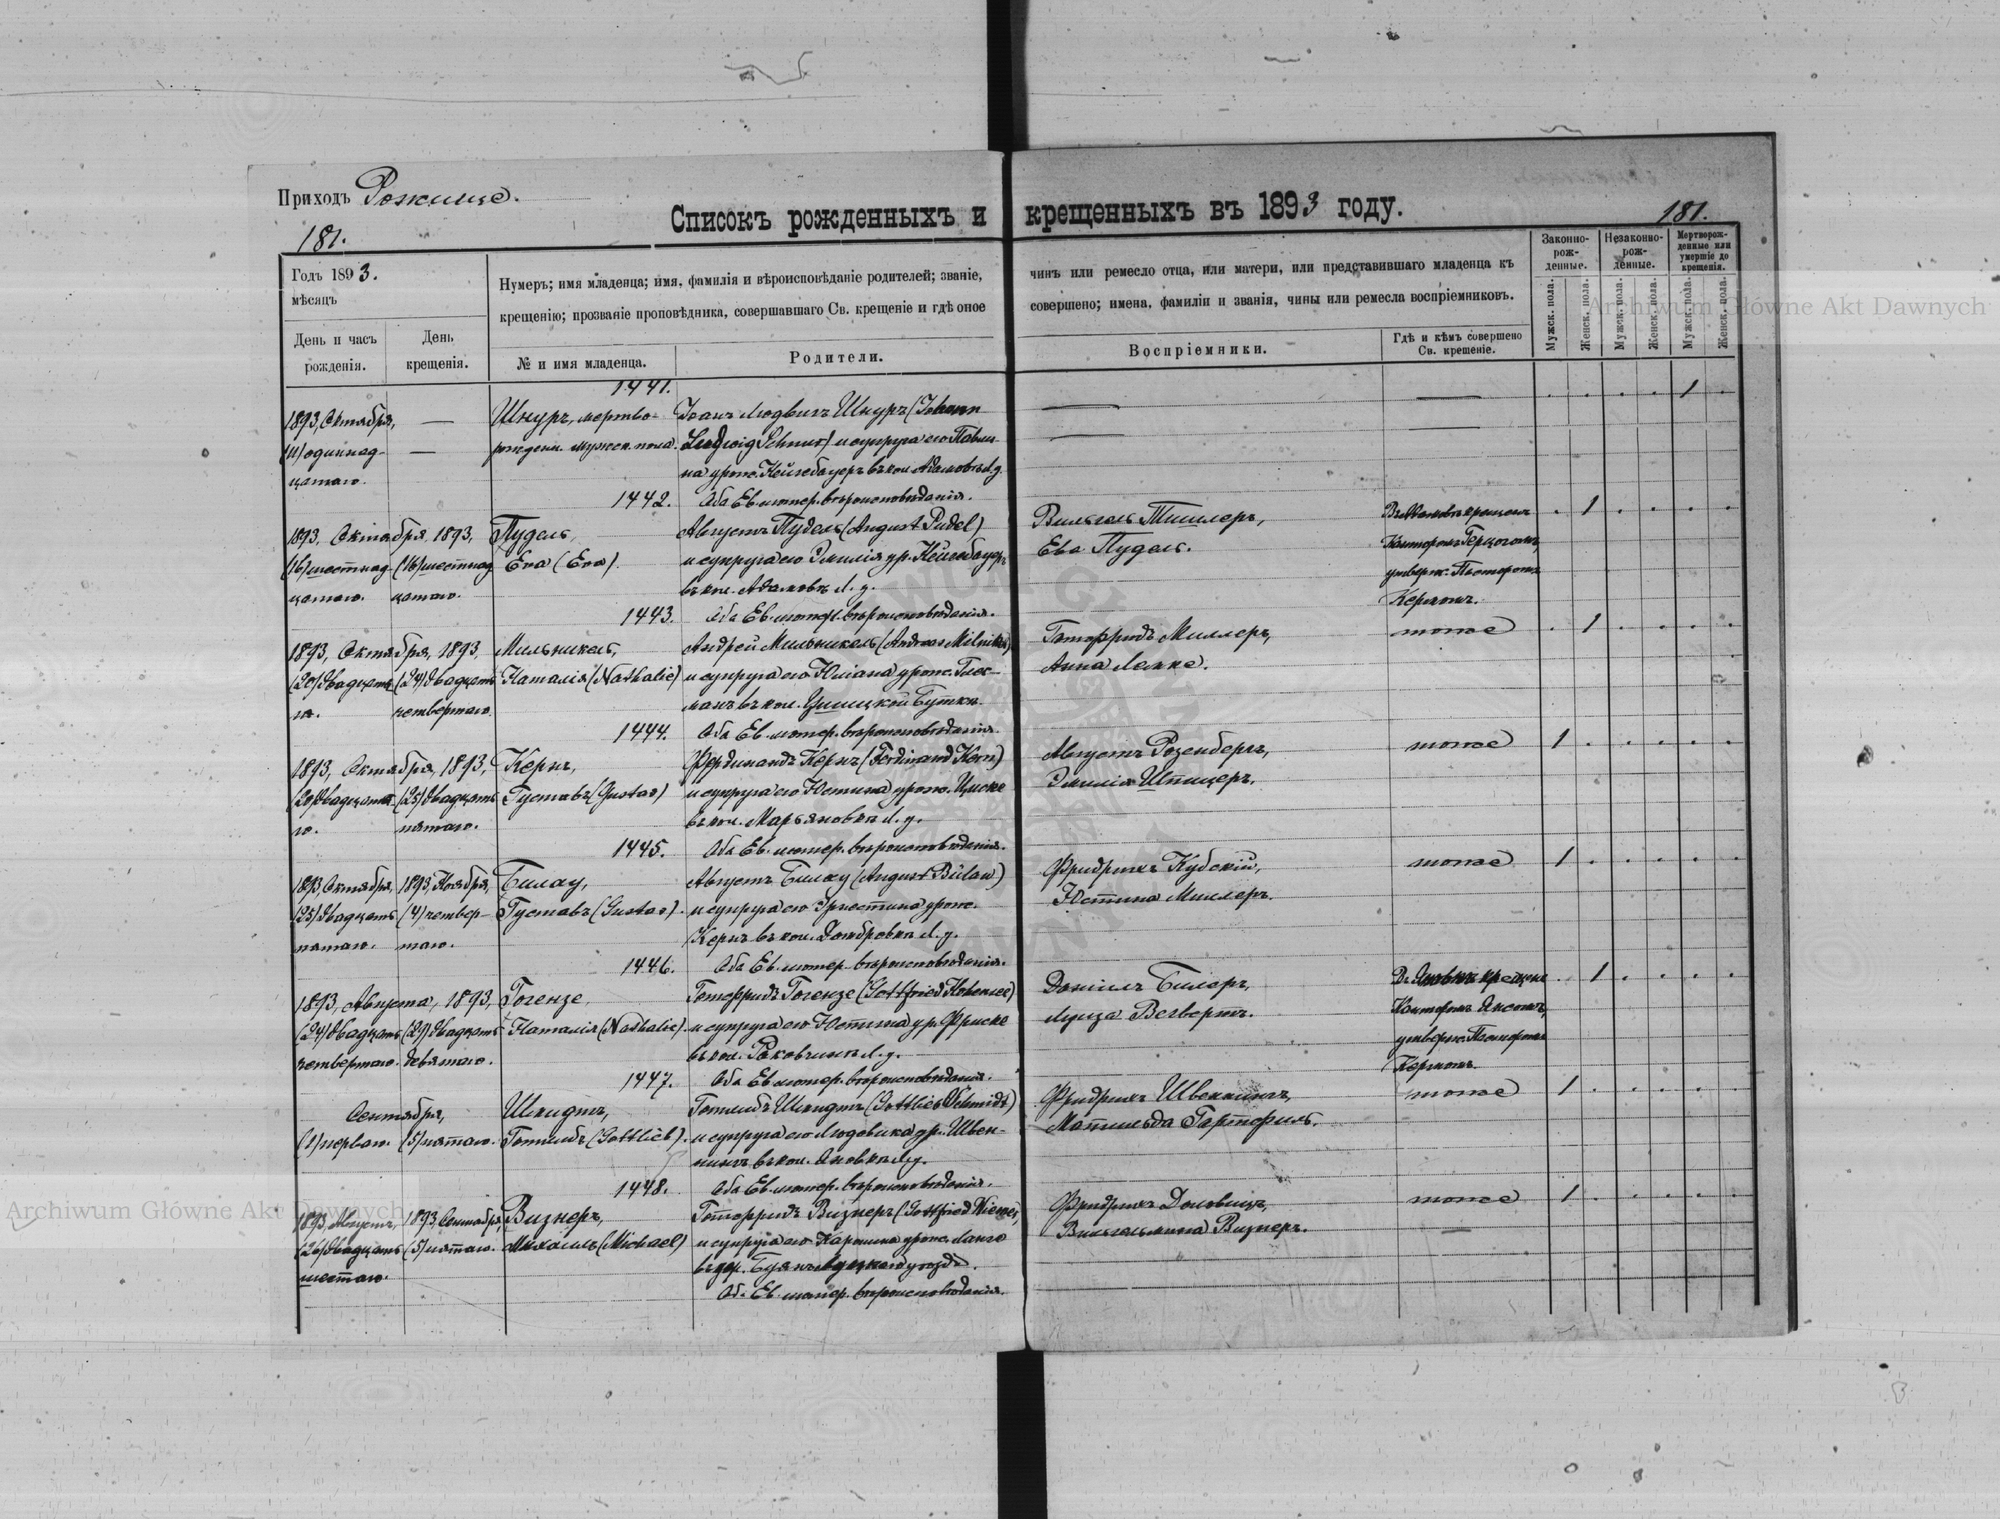 Приходъ Рожище.
Списокъ рожденныхъ и крещенныхъ въ 1893 году.
181.
181.
Годъ 1893.
мѣсяцъ
День и часъ рожденія.
День крещенія.
Нумеръ; имя младенца; имя, фамилія и вѣроисповѣданіе родителей; званіе,
крещенію; прозваніе проповѣдника, совершавшаго Св. крещеніе и гдѣ оное
№ и имя младенца.
Родители.
чинъ или ремесло отца, или матери, или представившаго младенца къ
совершено; имена, фамиліи и званія, чины или ремесла воспріемниковъ.
Воспріемники.
Гдѣ и кѣмъ совершено
Св. крещеніе.
Законно-
рож-
денные.
Незаконно-
рож-
денные.
Мертворож-
денные или
умершіе до
крещенія.
Мужск. пола.
Женск. пола.
Мужск. пола.
Женск. пола.
Мужск. пола.
Женск. пола.
Archiwum Główne Akt Dawnych
1441.
1893, Октября,
(11) одиннад-
цатаго.
—
—
Шнуръ, мертво-
рожден. мужеск. пола.
Іоганъ Людвигъ Шнуръ (Johann
Ludwig Schnur) и супруга его Паули-
на урож. Нейгебауеръ въ кол. Адамовкѣ Л. у.
Оба Ев. лютер. вѣроисповѣданія.
1
1442.
1893, Октября, 1893,
(16) шестнад- (16) шестнад
цатаго. цатаго.
Пудель,
Ева (Eva).
Августъ Пудель (August Pudel)
и супруга его Эмилія ур. Нейгебауеръ
въ кол. Адамовкѣ Л. у.
Оба Ев. лютер. вѣроисповѣданія.
Ева Пудель.
Канторомъ Герцогомъ,
утверж. Пасторомъ
Керномъ.
1
1443.
1893, Октября, 1893,
(20) двадцата- (24) двадцать
го. четвертаго.
Мильникель,
Наталія (Nathalie)
Андрей Мильникель (Andreas Milnikel)
и супруга его Юліана урож. Глес-
манъ въ кол.
Оба Ев. лютер. вѣроисповѣданія.
Готфридъ Миллеръ,
Анна Лемке.
тоже
1
1444.
1893, Октября, 1893,
(20) двадцата- (25) двадцать
го. пятаго.
Кернъ,
Густавъ (Gustav)
Фердинандъ Кернъ (Ferdinand Kern)
и супруга его Юстина урож. Циске
въ кол. Марьяновкѣ Л. у.
Оба Ев. лютер. вѣроисповѣданія.
Августъ Розенбергъ,
Эмилія Шпицеръ.
тоже
1
1445.
1893, Октября, 1893, Ноября,
(25) двадцать (4) четвер-
пятаго. таго.
Билау,
Густавъ (Gustav).
Августъ Билау (August Bülaw)
и супруга его Эрнестина урож.
Кернъ въ кол. Домбровкѣ Л. у.
Оба Ев. лютер. вѣроисповѣданія.
Фридрихъ Кубскій,
Юстина Миллеръ.
тоже
1
1446.
1893, Августа, 1893,
(24) двадцать (29) двадцать
четвертаго. девятаго.
Гогензе,
Наталія (Nathalie).
Готфридъ Гогензе (Gottfried Hohensee)
и супруга его Юстина ур. Фриске
въ кол. Раковчинѣ Л. у.
Оба Ев. лютер. вѣроисповѣданія.
Даніилъ Биларъ,
Луиза Везвертъ.
Канторомъ
утверж. Пасторомъ
Керномъ.
1
1447.
Сентября,
(1) перваго. (5) пятаго.
Шмидтъ,
Готлибъ (Gottlieb).
Готлибъ Шмидтъ (Gottlieb Schmidt)
и супруга его Людовика ур. Швен-
нингъ въ кол. Яновкѣ Л. у.
Оба Ев. лютер. вѣроисповѣданія.
Фридрихъ Швеннингъ,
Матильда Гартфиль.
тоже
1
1448.
1893, Августа, 1893, Сентября,
(26) двадцать (5) пятаго.
шестаго.
Визнеръ,
Михаилъ (Michael)
Готфридъ Визнеръ (Gottfried Wiesner)
и супруга его Каролина урож. Ланге
въ дер. Буянъ Луцкаго уѣзда.
Об. Ев. лютер. вѣроисповѣданія.
Вильгельмина Визнеръ.
тоже
1
Archiwum Główne Akt Dawnych